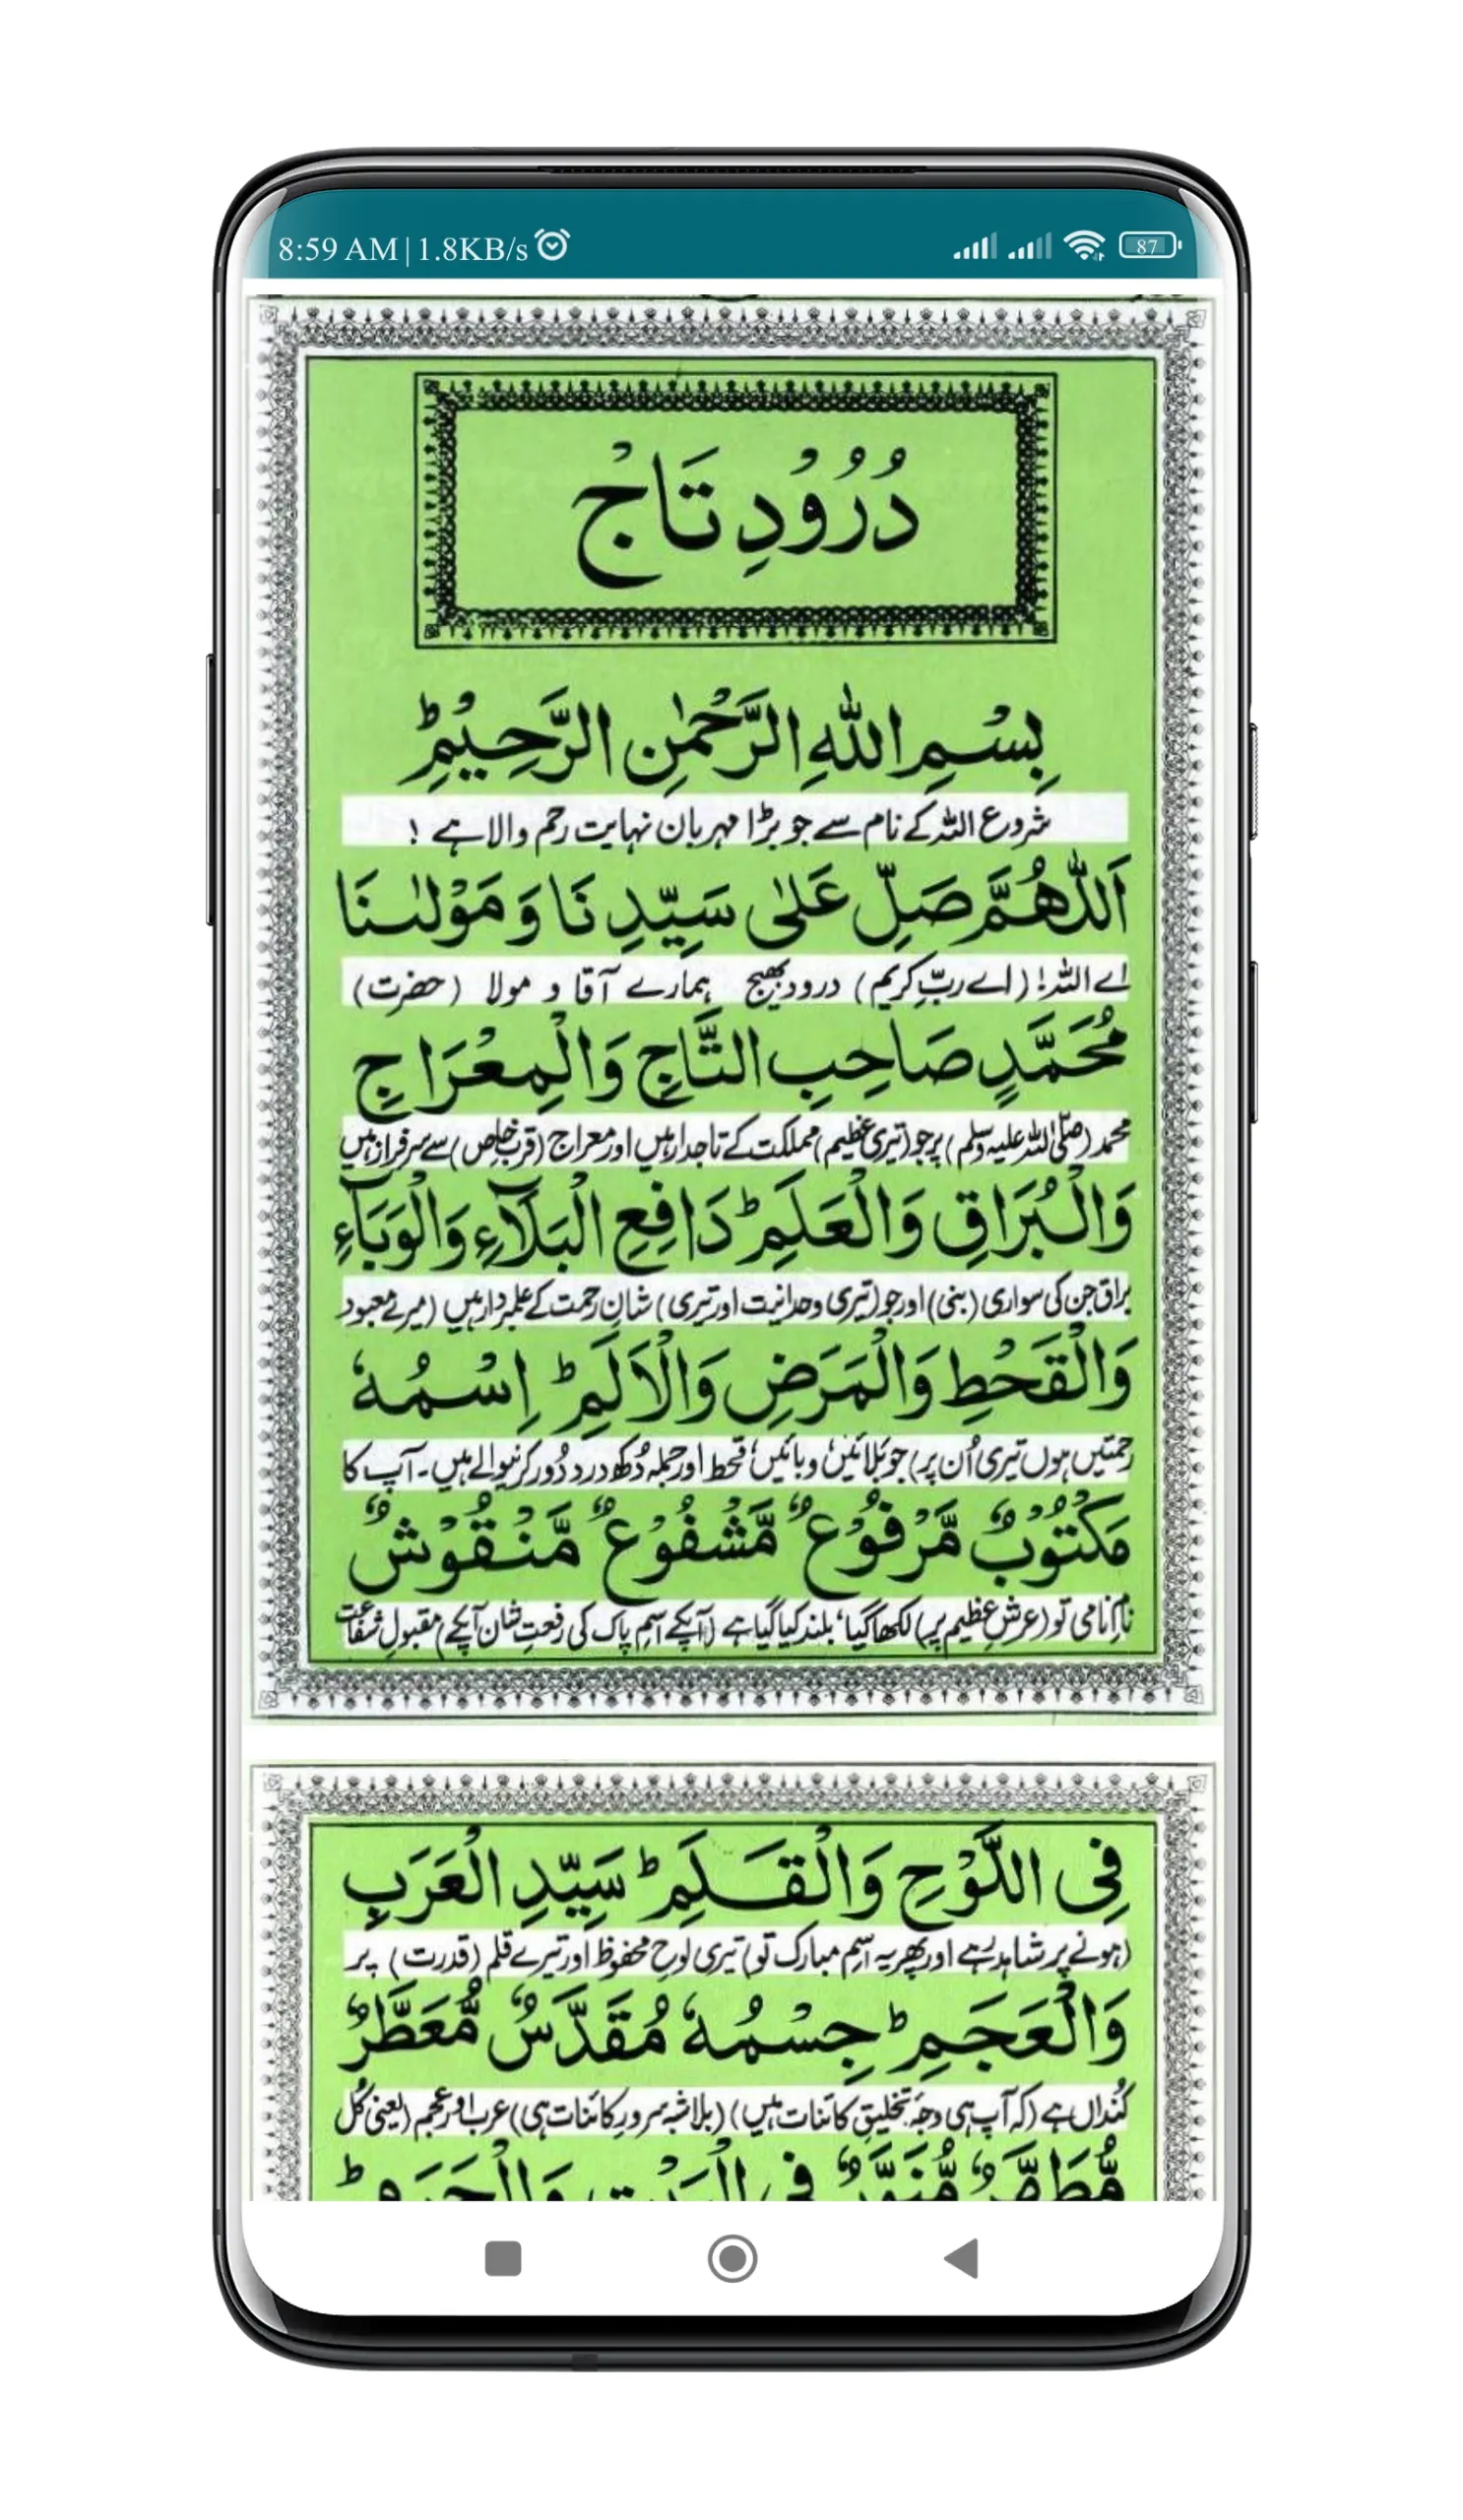 8:59 AM | 1.8KB/s
87
دُرُوْدِ تَاجْ
بِسْمِ اللّٰهِ الرَّحْمٰنِ الرَّحِيْمِؕ
شروع اللہ کے نام سے جو بڑا مہربان نہایت رحم والا ہے !
اَللّٰهُمَّ صَلِّ عَلٰى سَيِّدِنَا وَ مَوْلٰىنَا
اے اللہ! (اے ربِّ کریم) درود بھیج ہمارے آقا و مولا (حضرت)
مُحَمَّدٍ صَاحِبِ التَّاجِ وَالْمِعْرَاجِ
محمد (صلی اللہ علیہ وسلم) پر جو (تیری عظیم) مملکت کے تاجدار ہیں اور معراج (قربِ خاص) سے سرفراز ہیں
وَالْبُرَاقِ وَالْعَلَمِؕ دَافِعِ الْبَلَآءِ وَالْوَبَآءِ
براق جن کی سواری (بنی) اور جو (تیری وحدانیت اور تیری) شانِ رحمت کے علمبردار ہیں (میرے معبود
وَالْقَحْطِ وَالْمَرَضِ وَالْاَلَمِؕ اِسْمُهٗ
رحمتیں ہوں تیری اُن پر) جو بلائیں، وبائیں، قحط اور جملہ دُکھ درد دُور کرنیوالے ہیں۔ آپ کا
مَكْتُوْبٌ مَّرْفُوْعٌ مَّشْفُوْعٌ مَّنْقُوْشٌ
نامِ نامی تو (عرشِ عظیم پر) لکھا گیا، بلند کیا گیا ہے (آپکے اسم پاک کی رفعتِ شان آپکے) مقبولِ شفاعت
فِی اللَّوْحِ وَالْقَلَمِؕ سَيِّدِ الْعَرَبِ
(ہونے پر شاہد ہے اور پھر یہ اسم مبارک تو) تیری لوحِ محفوظ اور تیرے قلم (قدرت) پر
وَالْعَجَمِؕ جِسْمُهٗ مُقَدَّسٌ مُّعَطَّرٌ
کُنداں ہے (کہ آپ ہی وجہِ تخلیقِ کائنات ہیں) (بلاشبہ سرورِ کائنات ہی) عرب اور عجم (یعنی کُل
مُّطَهَّرٌ مُّنَوَّرٌ فِی الْبَيْتِ وَالْحَرَمِؕ